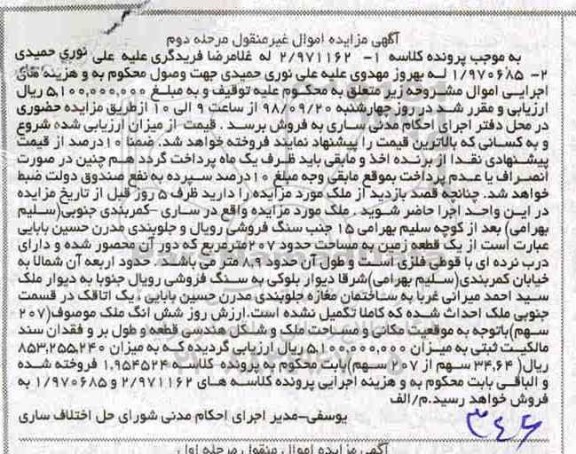 آگهی مزایده اموال غیرمنقول مرحله دوم
به موجب پرونده کلاسه ۱- ۲/۹۷۱۱۶۲ له غلامرضا فریدگری علیه علی نوری حمیدی
۲- ۱/۹۷۰۶۸۵ لـه بهروز مهدوی علیه علی نوری حمیدی جهت وصول محکوم به و هزینه های
اجرایـی اموال مشـروحه زیر متعلق به محکـوم علیه توقیف و به مبلـغ ۵,۱۰۰,۰۰۰,۰۰۰ ریال
ارزیابی و مقرر شـد در روز چهارشـنبه ۹۸/۰۹/۲۰ از ساعت ۹ الی ۱۰ ازطریق مزایده حضوری
در محل دفتر اجرای احکام مدنی ساری به فروش برسـد . قیمت از میزان ارزیابی شده شروع
و به کسـانی که بالاترین قیمت را پیشنهاد نمایند فروخته خواهد شد. ضمنا ۱۰درصد از قیمت
پیشـنهادی نقـدا از برنده اخذ و مابقی باید ظرف یک ماه پرداخت گردد هم چنین در صورت
انصـراف یا عدم پرداخت بموقع مابقی وجه مبلغ ۱۰درصد سـپرده به نفع صندوق دولت ضبط
خواهد شـد. چنانچه قصد بازدید از ملک مورد مزایده را دارید ظرف ۵ روز قبل از تاریخ مزایده
در ایـن واحـد اجرا حاضـر شـوید . ملک مورد مزایده واقع در ساری -کمربندی جنوبی(سـلیم
بهرامی) بعد از کوچه سلیم بهرامی ۱۵ جنب سنگ فروشی رویال و جلوبندی مدرن حسین بابایی
عبارت است از یک قطعه زمین به مساحت حدود ۲۰۷مترمربع که دور آن محصور شده و دارای
درب نرده ای با قوطی فلزی اسـت و طول آن حدود ۸,۹ متر می باشـد. حدود اربعه آن شمالا به
خیابان کمربندی(سـلیم بهرامی)شـرقا دیوار بلوکی به سـنگ فروشی رویال جنوبا به دیوار ملک
سـید احمد میرانی غربـا به سـاختمان مغازه جلوبندی مدرن حسـین بابایـی ، یک اتاقک در قسمت
جنوبی ملک احداث شـده که کاملا تکمیل نشده است.ارزش روز شش انگ ملک موصوف(۲۰۷
سـهم)باتوجه به موقعیت مکانی و مسـاحت ملک و شـکل هندسـی قطعه و طول بر و فقدان سند
مالکیـت ثبتی به میـزان ۵,۱۰۰,۰۰۰,۰۰۰ریـال ارزیابی گردیـده کـه به میـزان ۸۵۳,۲۵۵,۲۴۰
ریال( ۳۴,۶۴ سـهم از ۲۰۷ سـهم)بابت محکوم به پرونده کلاسـه ۱,۹۵۴۵۲۴ فروخته شده
و الباقـی بابت محکوم به و هزینه اجرایی پرونده کلاسـه های ۲/۹۷۱۱۶۲ و ۱/۹۷۰۶۸۵ به
فروش خواهد رسـید.م/الف
یوسفی-مدیر اجرای احکام مدنی شورای حل اختلاف ساری
۳۴۶
آگهی مزایده اموال منقول مرحله اول